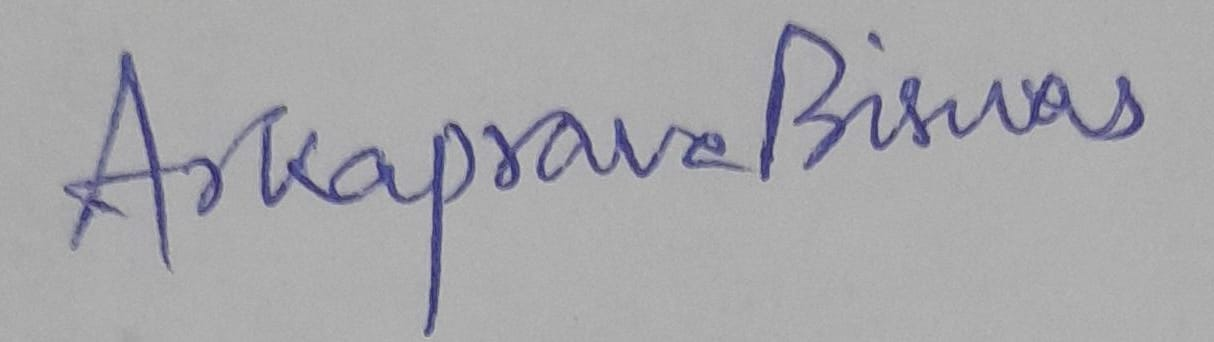 Arkaprava Biswas